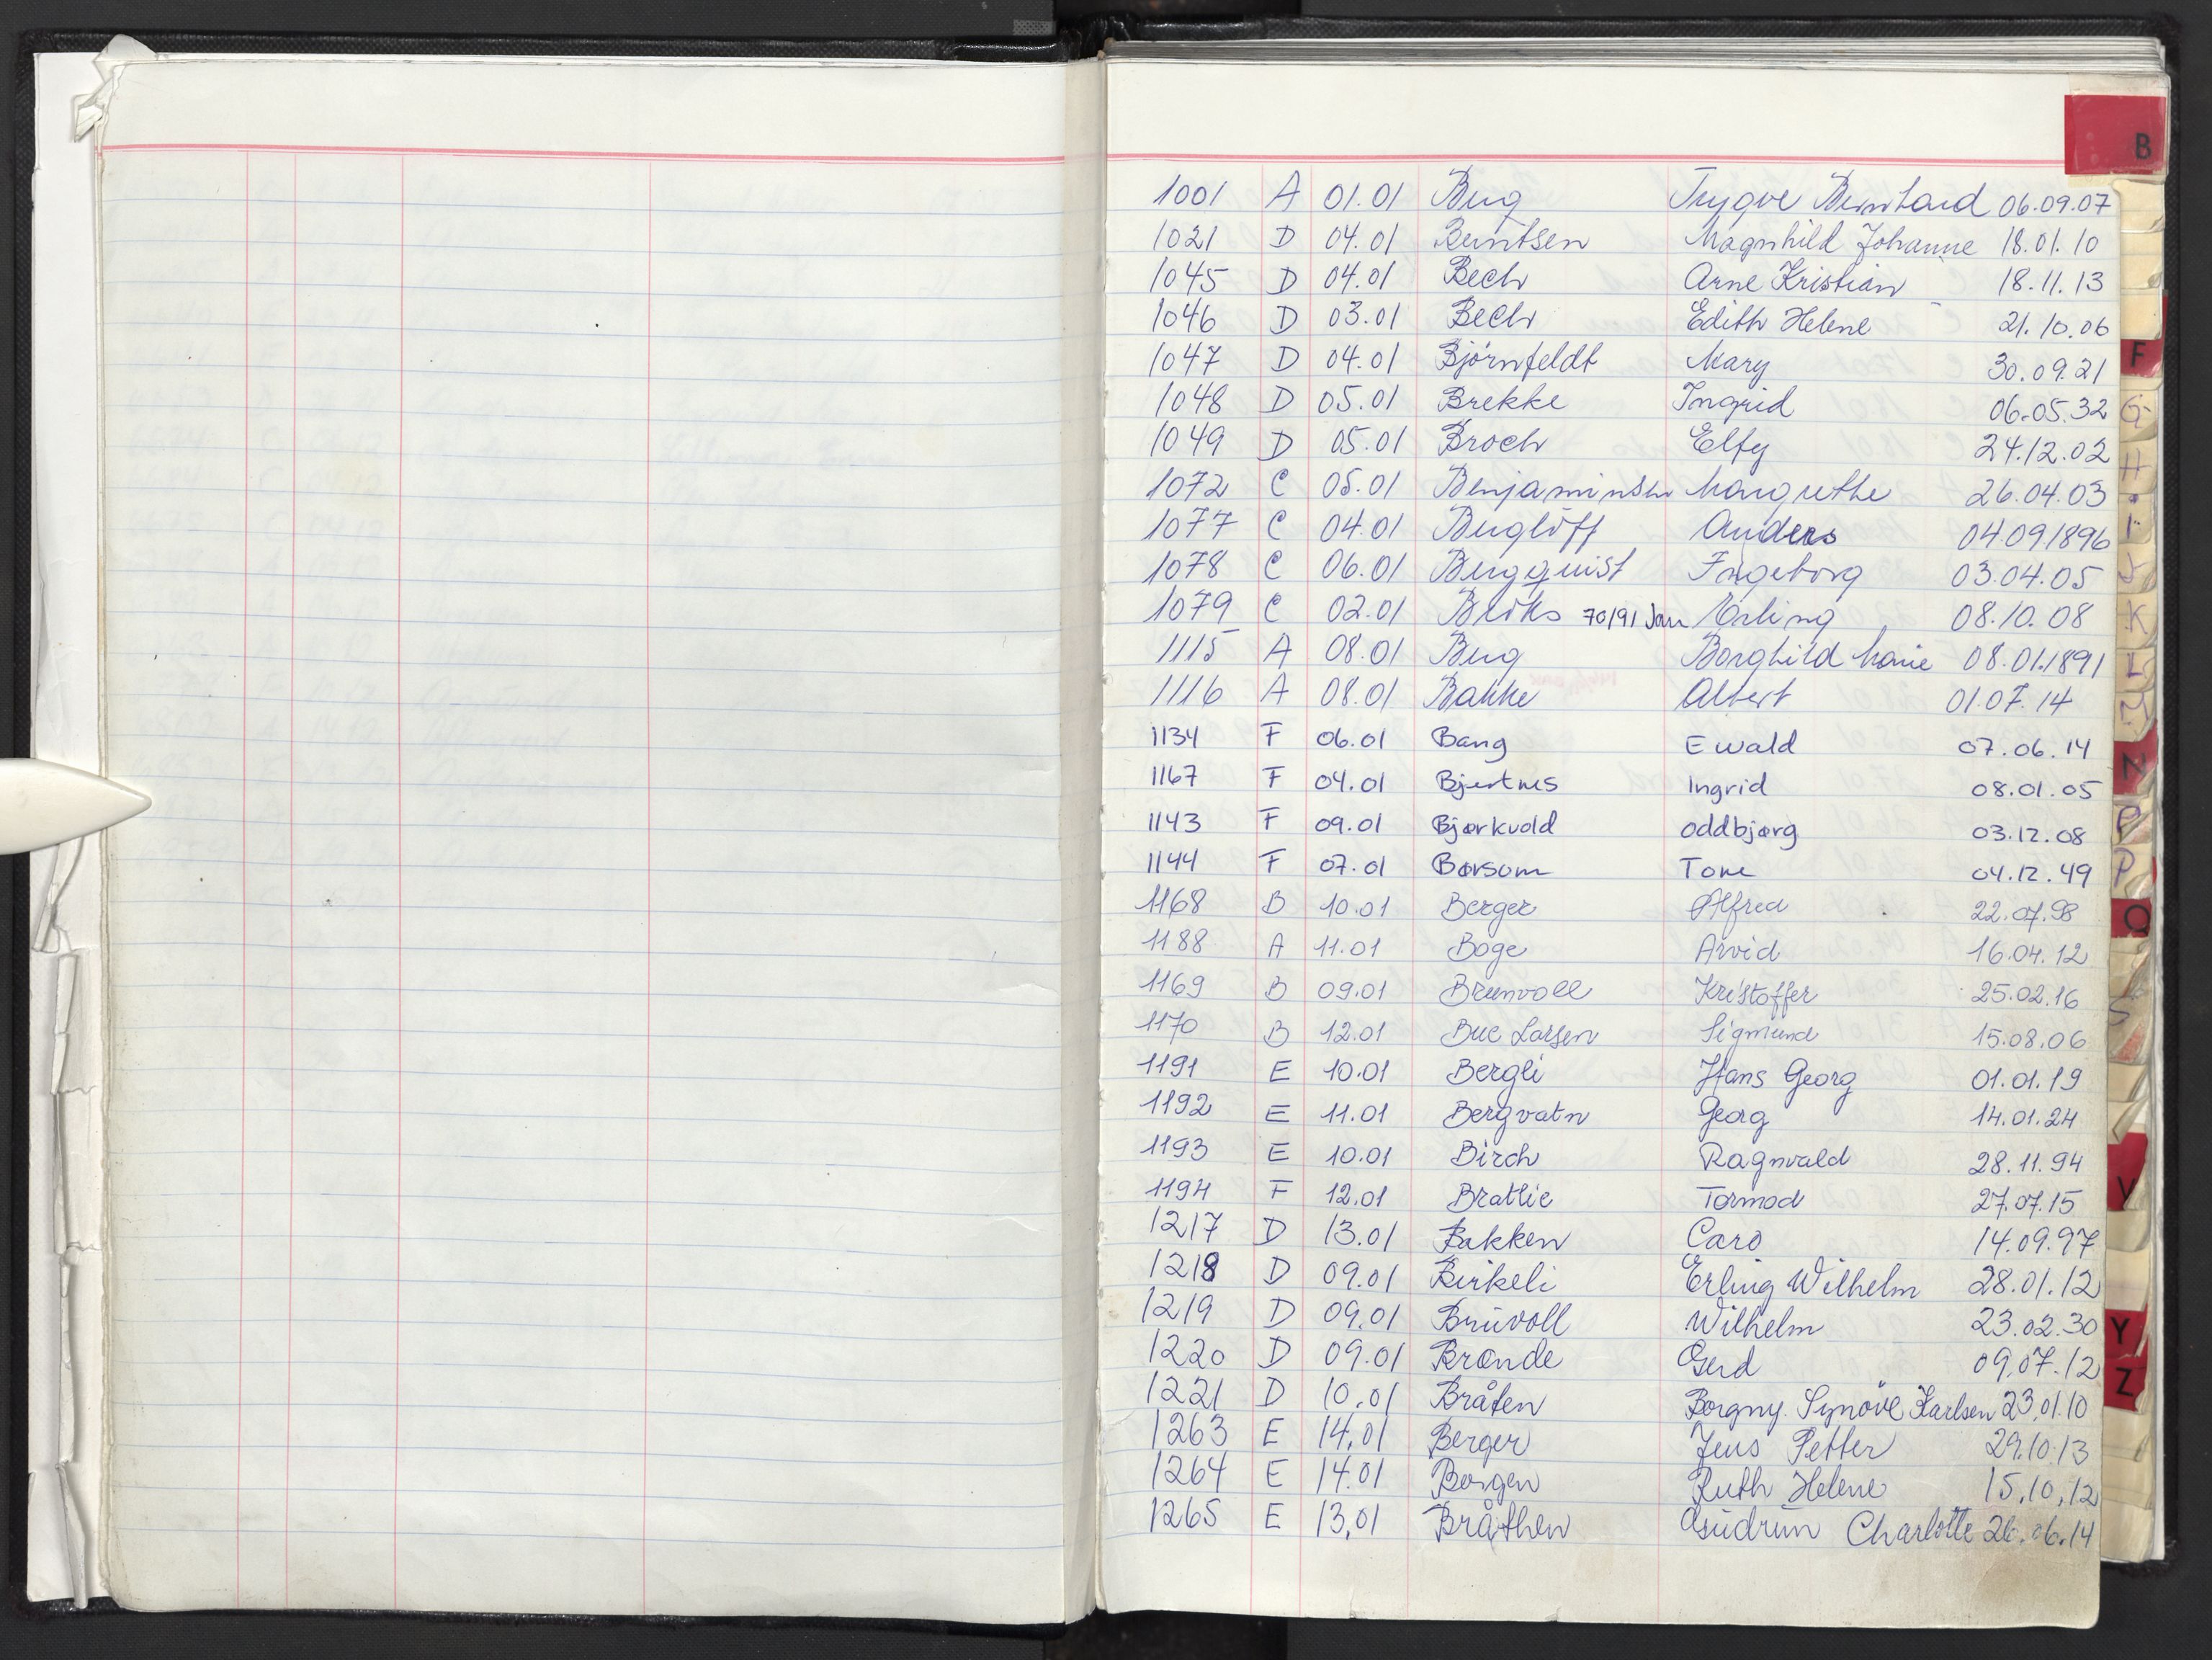 B
1001 A 01.01 Berg Trygve Bernhard 06.09.07
1021 D 04.01 Berntsen Magnhild Johanne 18.01.10
1045 D 04.01 Bech Arne Kristian 18.11.13
1046 D 03.01 Bech Edith Helene 21.10.06
1047 D 04.01 Bjørnfeldt Mary 30.09.21
1048 D 05.01 Brekke Ingrid 06.05.32
1049 D 05.01 Broch Elfy 24.12.02
1072 C 05.01 Benjaminsen Margrethe 26.04.03
1077 C 04.01 Berglöff Anders 04.09.1896
1078 C 06.01 Bergquist Ingeborg 03.04.05
1079 C 02.01 70/91 Jan Erling 08.10.08
1115 A 08.01 Berg Borghild Marie 08.01.1891
1116 A 08.01 Bakke Albert 01.07.14
1134 F 06.01 Bang Ewald 07.06.14
1167 F 04.01 Bjertnes Ingrid 08.01.05
1143 F 09.01 Bjørkvold Oddbjørg 03.12.08
1144 F 07.01 Børsum Tone 04.12.49
1168 B 10.01 Berger Alfred 22.07.98
1188 A 11.01 Boge Arvid 16.04.12
1169 B 09.01 Brunvoll Kristoffer 25.02.16
1170 B 12.01 Bue Larsen Sigmund 15.08.06
1191 E 10.01 Bergli Hans Georg 01.01.19
1192 E 11.01 Bergvatn Georg 14.01.24
1193 E 10.01 Birch Ragnvald 28.11.94
1194 F 12.01 Bratlie Tormod 27.07.15
1217 D 13.01 Bakken Caro 14.09.97
1218 D 09.01 Birkeli Erling Wilhelm 28.01.12
1219 D 09.01 Bruvoll Wilhelm 23.02.30
1220 D 09.01 Brænde Gerd 09.07.12
1221 D 10.01 Bråten Borgny Synøve Karlsen 23.01.10
1263 E 14.01 Berger Jens Petter 29.10.13
1264 E 14.01 Borgen Ruth Helene 15.10.12
1265 E 13.01 Bråthen Gudrun Charlotte 26.06.14
F
G
H
I
J
K
L
N
P
Q
S
V
Y
Z